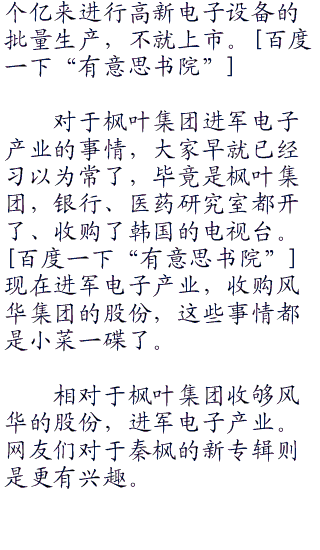 个亿来进行高新电子设备的
批量生产，不就上市。[百度
一下“有意思书院”]
对于枫叶集团进军电子
产业的事情，大家早就已经
习以为常了，毕竟是枫叶集
团，银行、医药研究室都开
了、收购了韩国的电视台。
[百度一下“有意思书院”]
现在进军电子产业，收购风
华集团的股份，这些事情都
是小菜一碟了。
相对于枫叶集团收够风
华的股份，进军电子产业。
网友们对于秦枫的新专辑则
是更有兴趣。